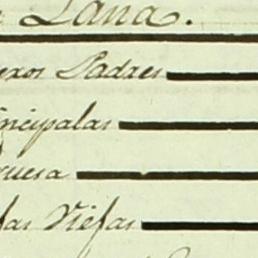 Lana.
exos Padres
incipalas
ruesa
fas Viejas